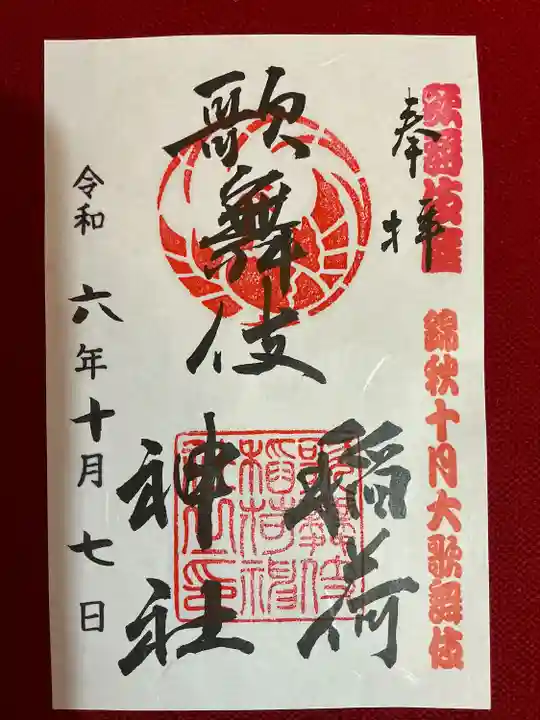 歌舞伎座
錦秋十月大歌舞伎
奉拝
歌舞伎
稲荷
神社
歌舞伎
稲荷神
社之印
令和六年十月七日